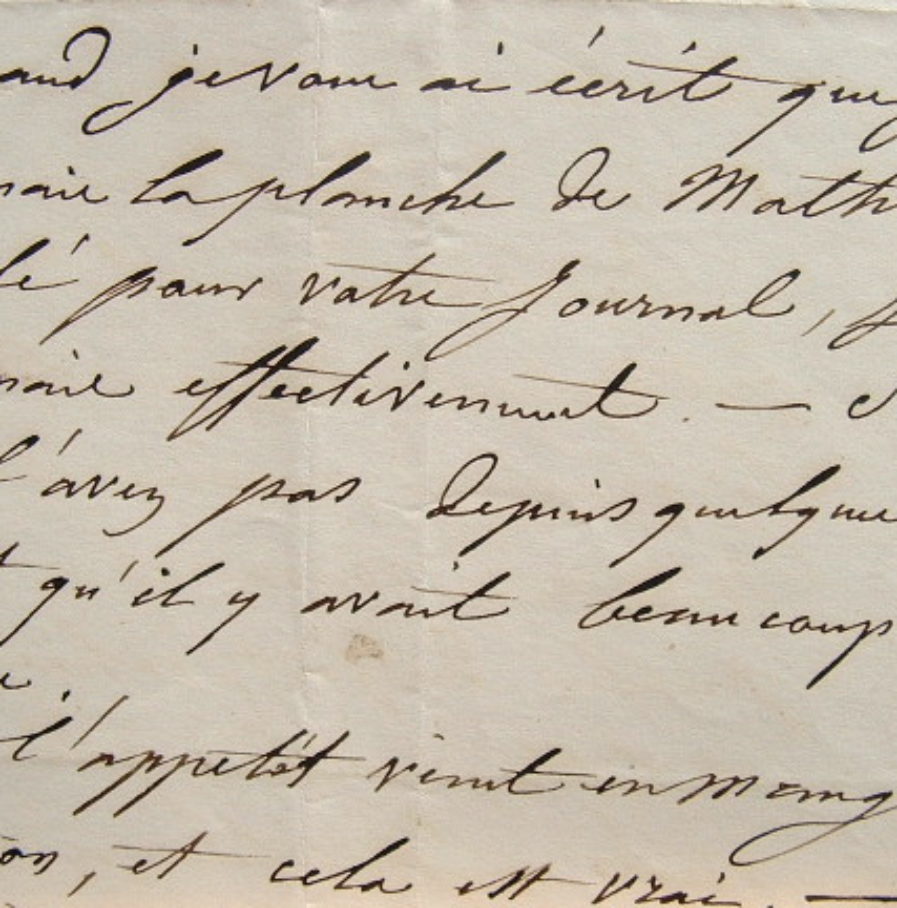 and je vous ai écrit que
la planche de Math
pour votre Journal,
effectivement. —
l'avez pas depuis quelque
qu'il y avait beaucoup
l'appetit vient en mang
on, et cela est vrai. —